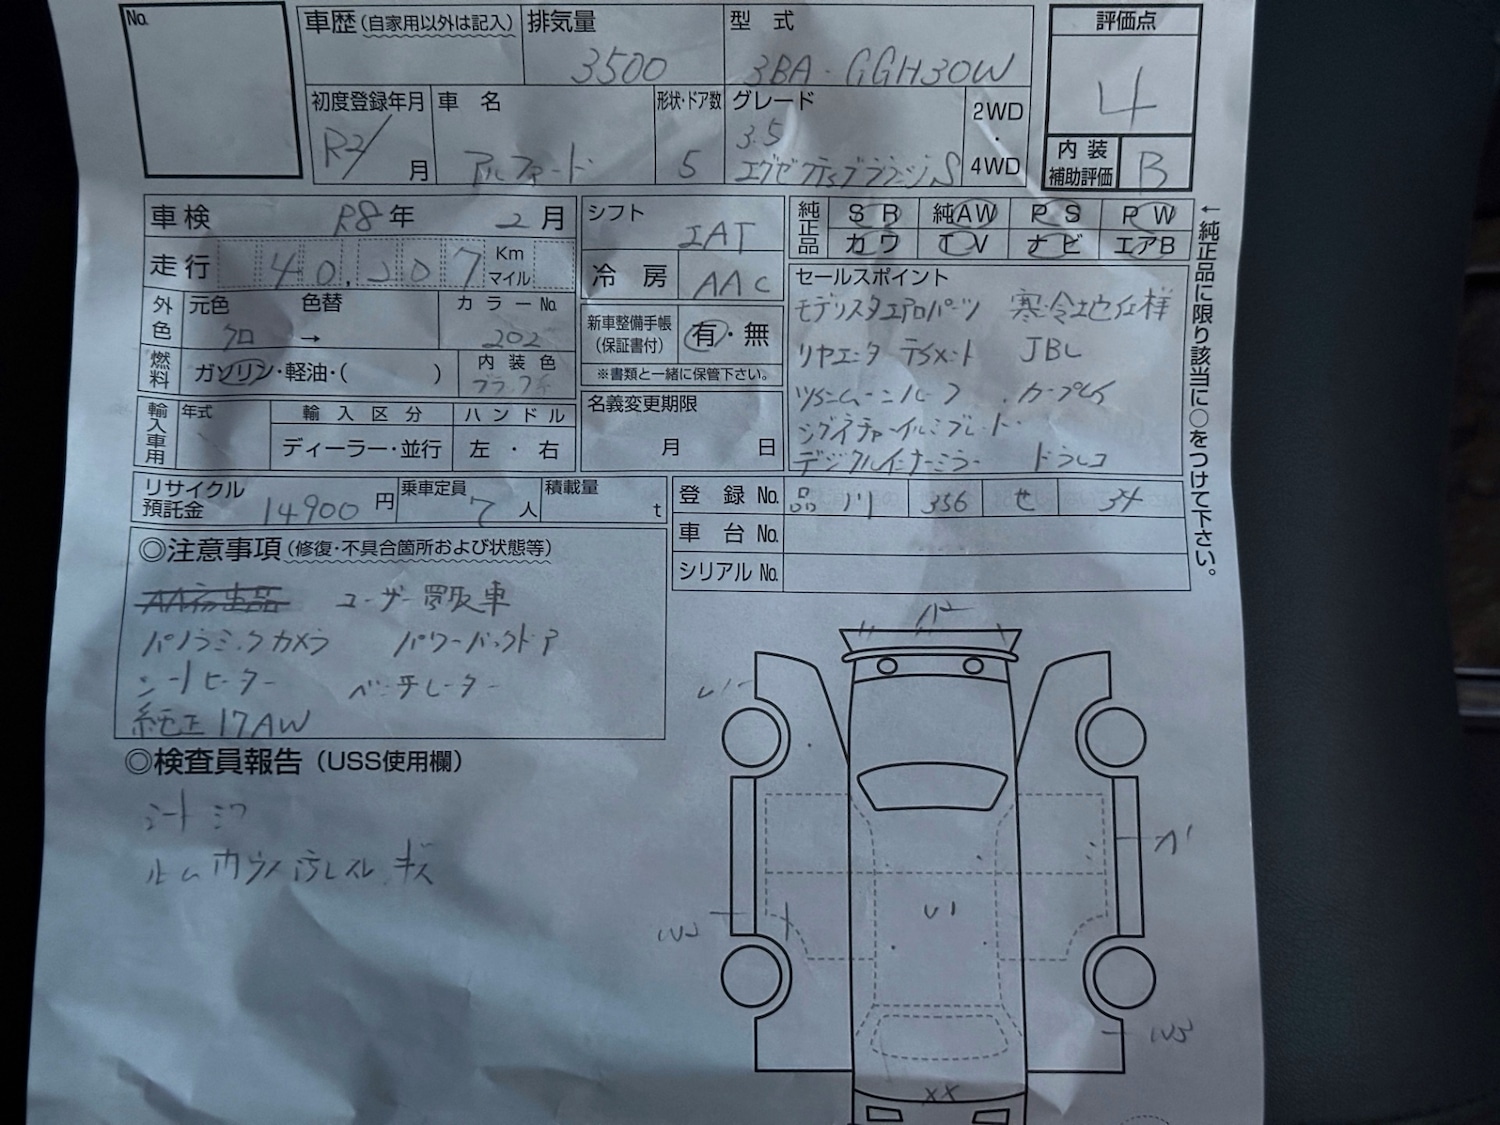 No.
車歴(自家用以外は記入) 排気量 型式 評価点
3500 3BA-GGH30W 4
初度登録年月 車名 形状・ドア数 グレード 2WD・4WD
R2/月 アルファード 5 3.5
エグゼクティブラウンジS
内装補助評価 B
車検 R8年 2月 シフト IAT 純正品 SR 純AW PS PW
カワ TV ナビ エアB
走行 Km マイル 冷房 AAC
外色 元色 色替 カラーNo.
クロ → 202
新車整備手帳(保証書付) 有・無
※書類と一緒に保管下さい。
燃料 ガソリン・軽油・( ) 内装色
ブラック
輸入車用 年式 輸入区分 ハンドル
ディーラー・並行 左・右
名義変更期限
月 日
セールスポイント
モデリスタエアロパーツ 寒冷地仕様
リヤエンタテイメント JBL
ツインムーンルーフ
デジタルインナーミラー ドラレコ
←純正品に限り該当に○をつけて下さい。
リサイクル預託金 14900円 乗車定員 7人 積載量 t
登録No. 品川 356 せ 34
車台No.
シリアルNo.
◎注意事項(修復・不具合箇所および状態等)
ユーザー買取車
パノラミックカメラ パワーバックドア
シートヒーター ベンチレーター
純正17AW
◎検査員報告(USS使用欄)
シートシワ
キズ
U1
XX